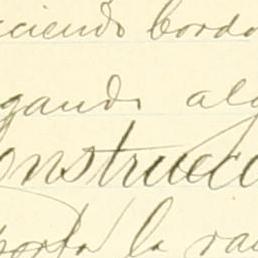 ciendo bordo
gando alg
onstrucci
porta la ra